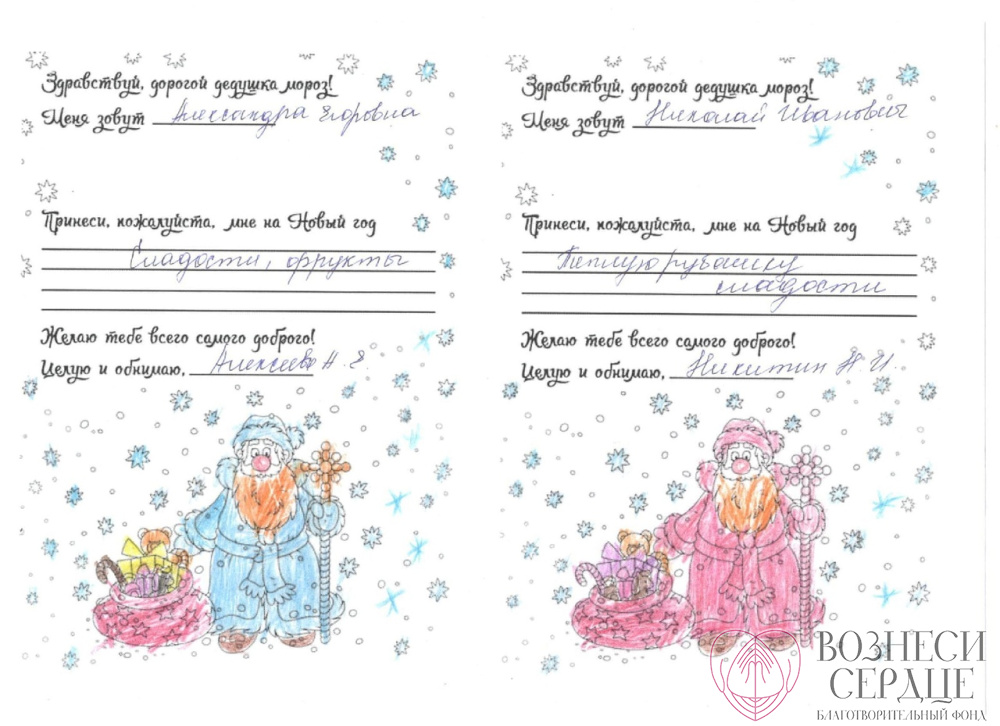 Здравствуй, дорогой дедушка мороз!
Меня зовут Александра Егоровна
Принеси, пожалуйста, мне на Новый год
Сладости, фрукты
Желаю тебе всего самого доброго!
Целую и обнимаю, Алексеева А. Е.
Здравствуй, дорогой дедушка мороз!
Меня зовут Николай Иванович
Принеси, пожалуйста, мне на Новый год
Теплую рубашку
сладости
Желаю тебе всего самого доброго!
Целую и обнимаю, Никитин Н. И.
ВОЗНЕСИ
СЕРДЦЕ
БЛАГОТВОРИТЕЛЬНЫЙ ФОНД